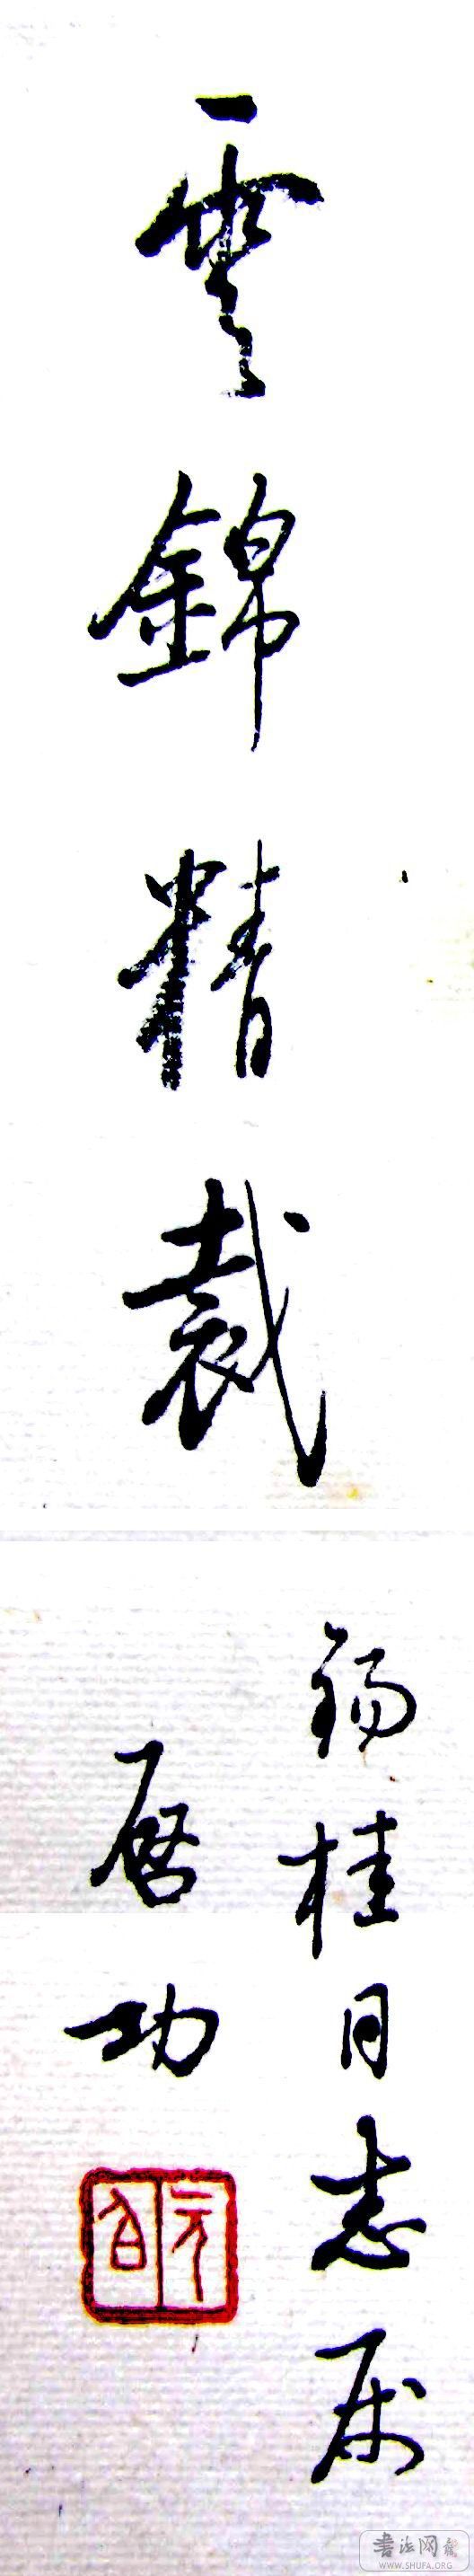 雲錦精裁
錫桂同志属
启功
元白
書法网
WWW.SHUFA.ORG